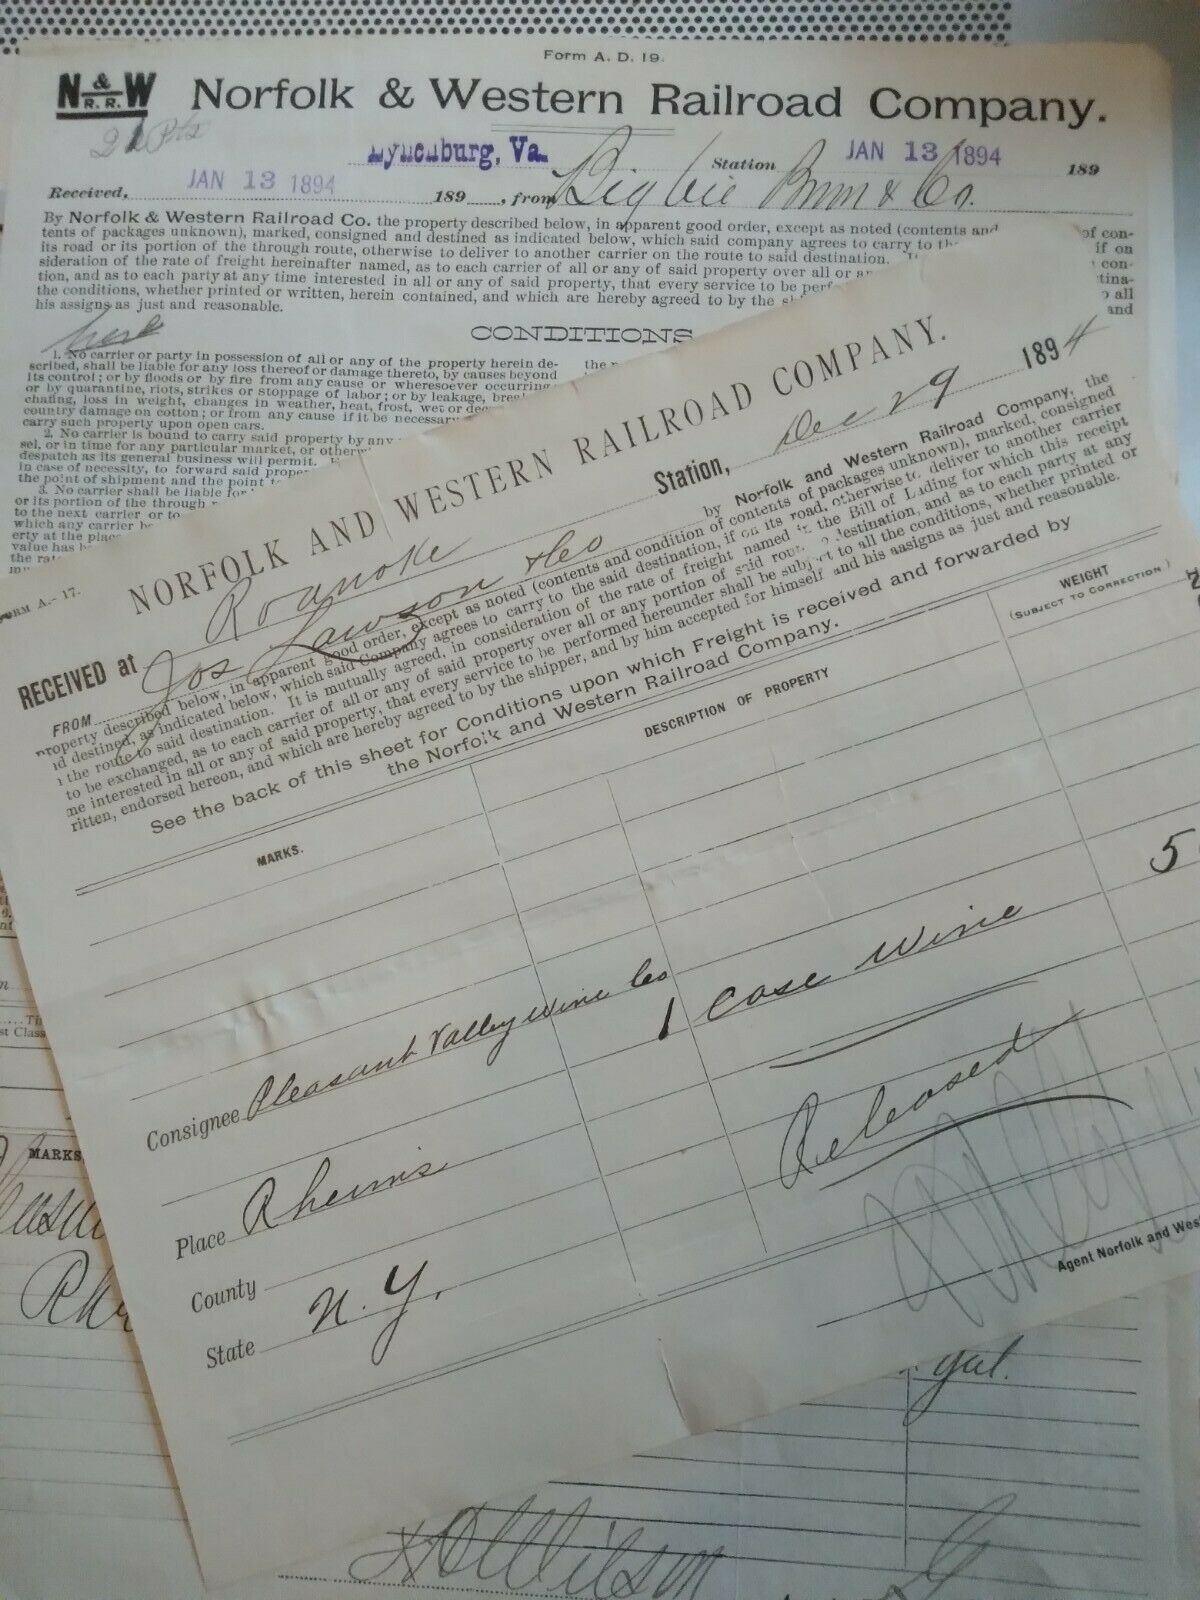 Form A. D. 19.
N & W
R. R.
Norfolk & Western Railroad Company.
Lynchburg, Va. Station JAN 13 1894 189
Received, JAN 13 1894 189 , from Bigbie & Co.
By Norfolk & Western Railroad Co. the property described below, in apparent good order, except as noted (contents and of con-
tents of packages unknown), marked, consigned and destined as indicated below, which said company agrees to carry to if on
its road or its portion of the through route, otherwise to deliver to another carrier on the route to said destination. con-
sideration of the rate of freight hereinafter named, as to each carrier of all or any of said property over all or tina-
tion, and as to each party at any time interested in all or any of said property, that every service to be all
the conditions, whether printed or written, herein contained, and which are hereby agreed to by the and
his assigns as just and reasonable.
CONDITIONS
1. No carrier or party in possession of all or any of the property herein de-
scribed, shall be liable for any loss thereof or damage thereto, by causes beyond
its control; or by floods or by fire from any cause or wheresoever occurring;
or by quarantine, riots, strikes or stoppage of labor; or by leakage,
chafing, loss in weight, changes in weather, heat, frost, wet or
country damage on cotton; or from any cause if it be necessary
carry such property upon open cars.
2. No carrier is bound to carry said property by any
sel, or in time for any particular market, or
despatch as its general business will permit.
in case of necessity, to forward said
the point of shipment and the point
3. No carrier shall be liable for
or its portion of the through
to the next carrier or to
which any carrier
erty at the place
value has
the
FORM A.- 17.
NORFOLK AND WESTERN RAILROAD COMPANY.
RECEIVED at Roanoke Station, Dec 29 1894
FROM Jos Lawson & Co by Norfolk and Western Railroad Company, the
property described below, in apparent good order, except as noted (contents and condition of contents of packages unknown), marked, consigned
destined, as indicated below, which said Company agrees to carry to the said destination, if on its road, otherwise to deliver to another carrier
the route to said destination. It is mutually agreed, in consideration of the rate of freight named in the Bill of Lading for which this receipt
to be exchanged, as to each carrier of all or any of said property over all or any portion of said route to destination, and as to each party at any
me interested in all or any of said property, that every service to be performed hereunder shall be subject to all the conditions, whether printed or
ritten, endorsed hereon, and which are hereby agreed to by the shipper, and by him accepted for himself and his assigns as just and reasonable.
See the back of this sheet for Conditions upon which Freight is received and forwarded by
the Norfolk and Western Railroad Company.
MARKS. DESCRIPTION OF PROPERTY WEIGHT
(SUBJECT TO CORRECTION)
Consignee Pleasant Valley Wine Co 1 Case Wine 5
Place Rheims Released
County
State N. Y.
Agent Norfolk and Wes
MARKS
gal.
Wilson